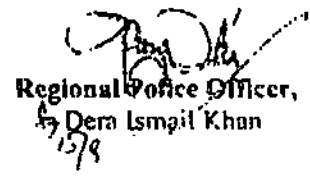 Regional Police Officer,
Dera Ismail Khan
15/9